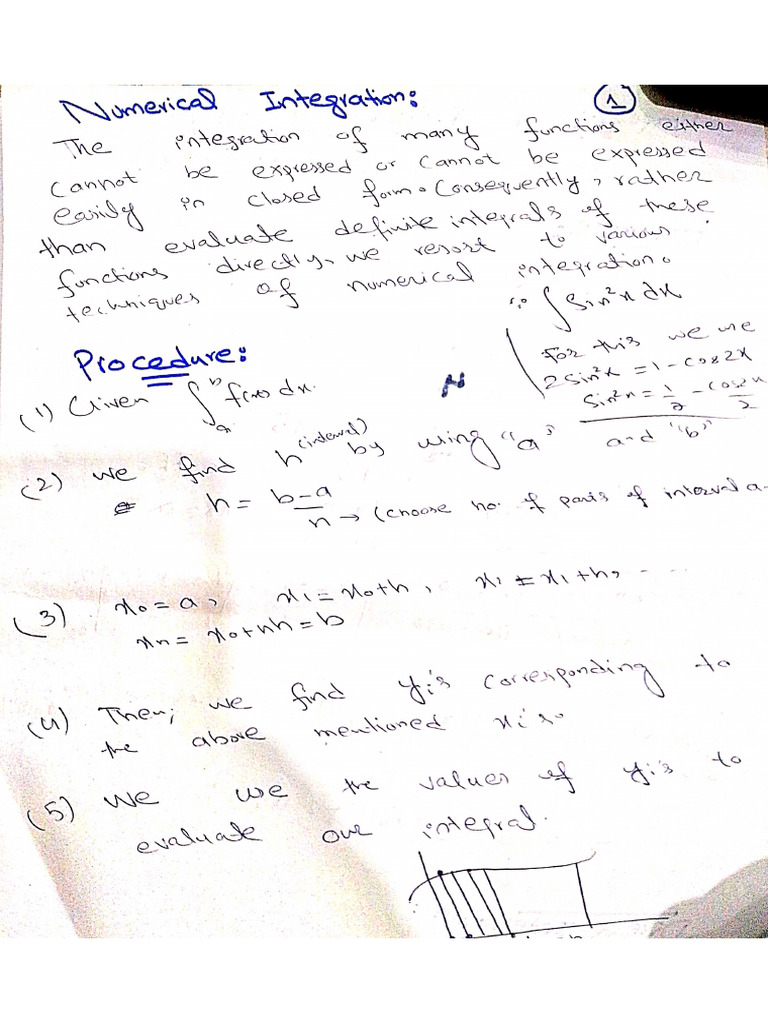 Numerical Integration: 1
The integration of many functions either
cannot be expressed or cannot be expressed
easily in closed form. Consequently, rather
than evaluate definite integrals of these
functions directly, we resort to various
techniques of numerical integration.
∵ ∫ Sin²x dx
For this we use
2Sin²x = 1 - Cos2x
Sin²x = 1/2 - Cos2x/2
Procedure:
(1) Given ∫ₐᵇ f(x) dx.
(2) we find h (interval) by using "a" and "b"
h = b-a/n → (choose no. of parts of interval a-
(3) x₀ = a, x₁ = x₀+h, x₁ = x₁+h, - - -
xₙ = x₀+nh = b
(4) Then; we find yᵢ's corresponding to
the above mentioned xᵢ's.
(5) We use the values of yᵢ's to
evaluate our integral.